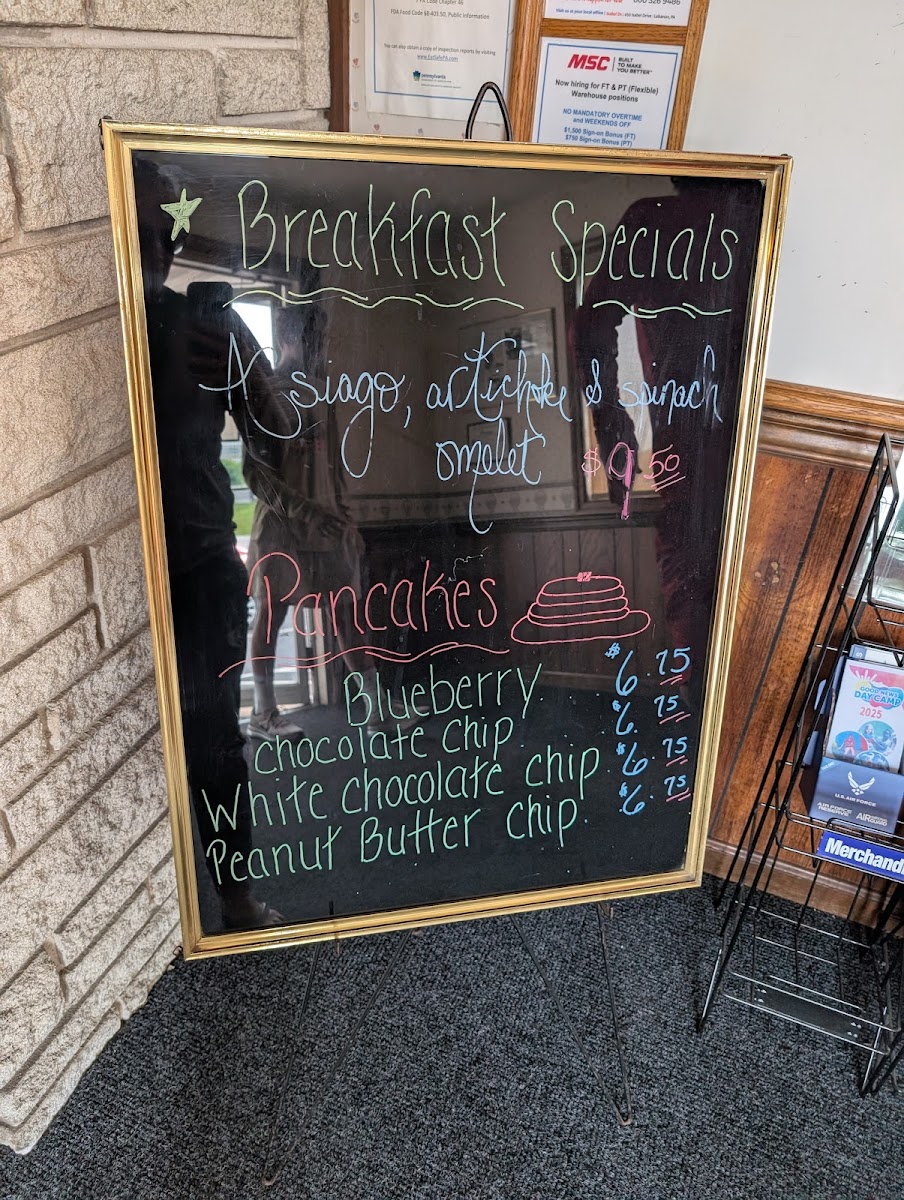 FDA Food Code 8-403.50, Public Information
You can also obtain a copy of inspection reports by visiting
www.EatSafePA.com
pennsylvania
MSC BUILT TO MAKE YOU BETTER™
Now hiring for FT & PT (Flexible)
Warehouse positions
NO MANDATORY OVERTIME
and WEEKENDS OFF
$1,500 Sign-on Bonus (FT)
$750 Sign-on Bonus (PT)
Breakfast Specials
Asiago, artichoke & spinach
omelet $9.50
Pancakes
Blueberry $6.75
chocolate chip $6.75
White chocolate chip $6.75
Peanut Butter chip $6.75
GOOD NEWS
DAY CAMP
2025
U.S. AIR FORCE
AIR FORCE RESERVE
Merchandi